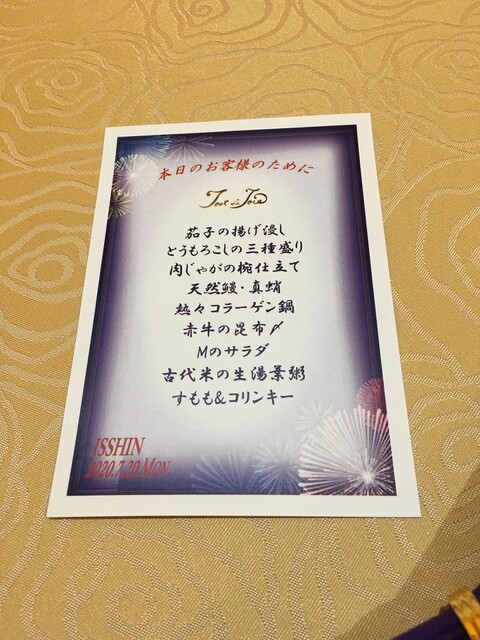 本日のお客様のために
茄子の揚げ浸し
とうもろこしの三種盛り
肉じゃがの椀仕立て
天然鰻・真蛸
熱々コラーゲン鍋
赤牛の昆布〆
Mのサラダ
古代米の生湯葉粥
すもも&コリンキー
ISSHIN
2020.7.20.MON